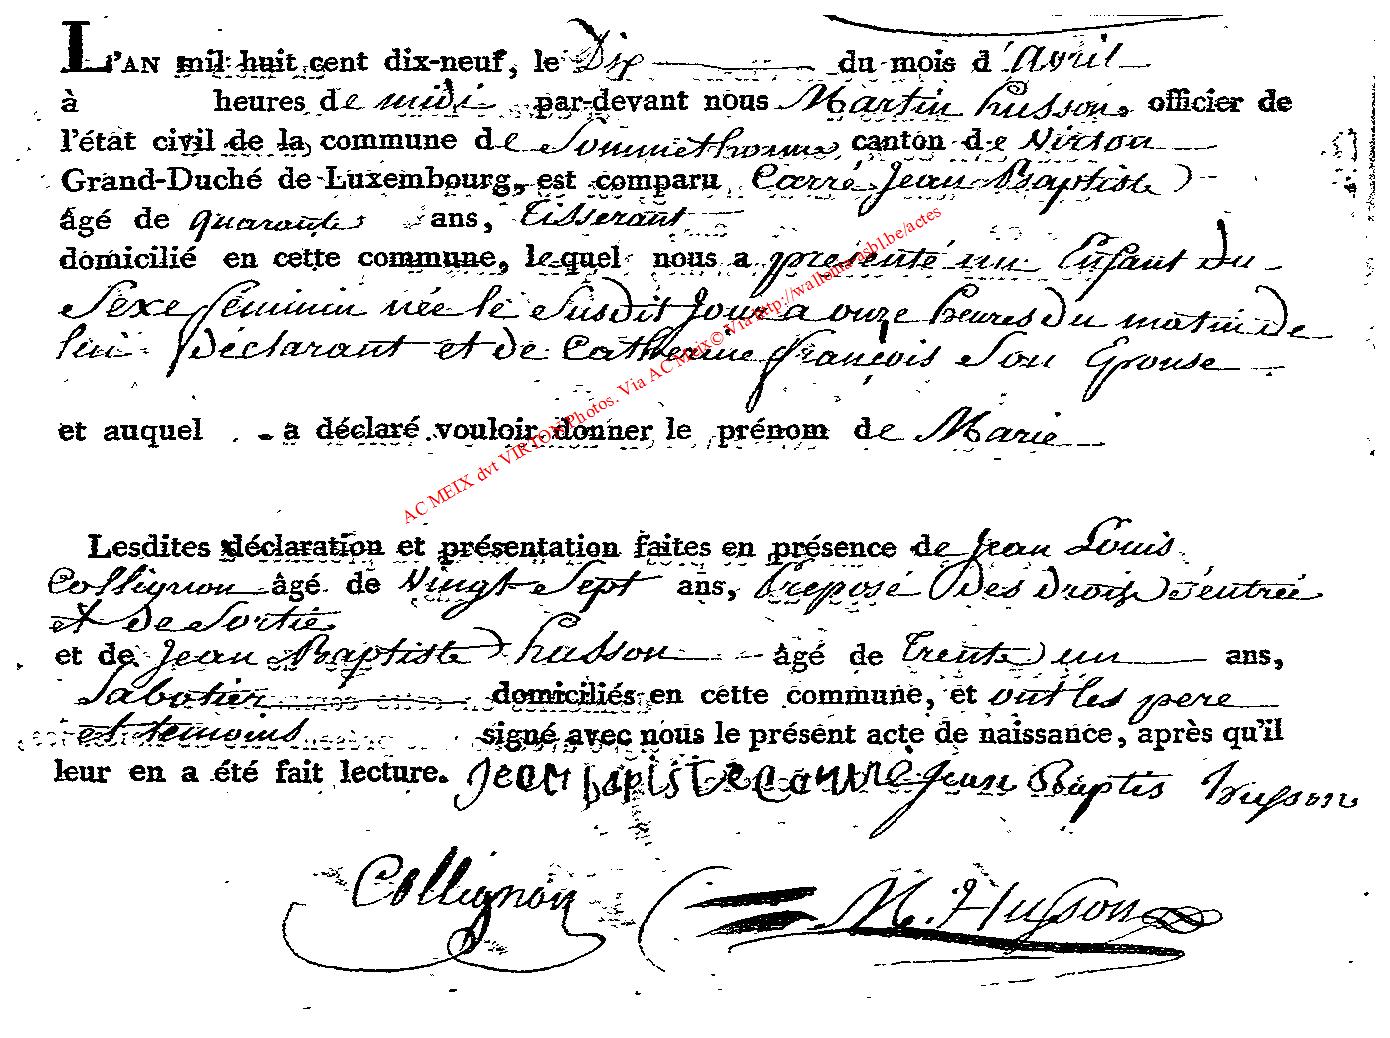 L'AN mil huit cent dix-neuf, le Dix du mois d'avril
à heures de midi par-devant nous Martin husson, officier de
l'état civil de la commune de Sommethonne canton de Virton
Grand-Duché de Luxembourg, est comparu Carré Jean Baptiste
âgé de quarante ans, Tisserant
domicilié en cette commune, lequel nous a présenté un Enfant du
Sexe féminin née le Susdit Jour a onze heures du matin de
lui Déclarant et de Catherine françois Son Epouse
et auquel a déclaré vouloir donner le prénom de Marie
Lesdites déclaration et présentation faites en présence de Jean Louis
Collignon âgé de Vingt Sept ans, Preposé Des Droits d'entrée
et de Sortie
et de Jean Baptiste husson âgé de Trente un ans,
Sabotier domiciliés en cette commune, et ont les pere
et temoins signé avec nous le présent acte de naissance, après qu'il
leur en a été fait lecture. Jean bapiste carre Jean Baptis husson
Collignon M. Husson
AC MEIX dvt VIRTON Photos. Via AC Meix© Via http://wallonia-asbl.be/actes